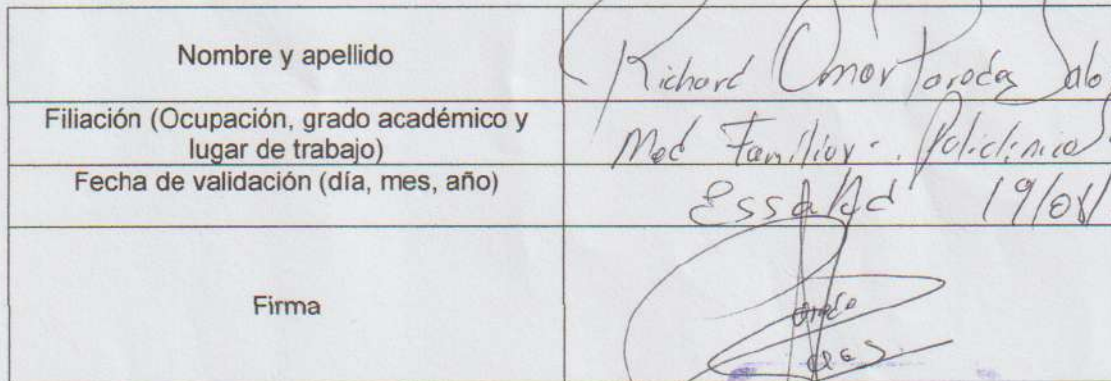 Nombre y apellido
Richard Omar Paredes
Filiación (Ocupación, grado académico y
lugar de trabajo)
Med Familiar - Policlínico
Fecha de validación (día, mes, año)
EssaLud 19/08/
Firma